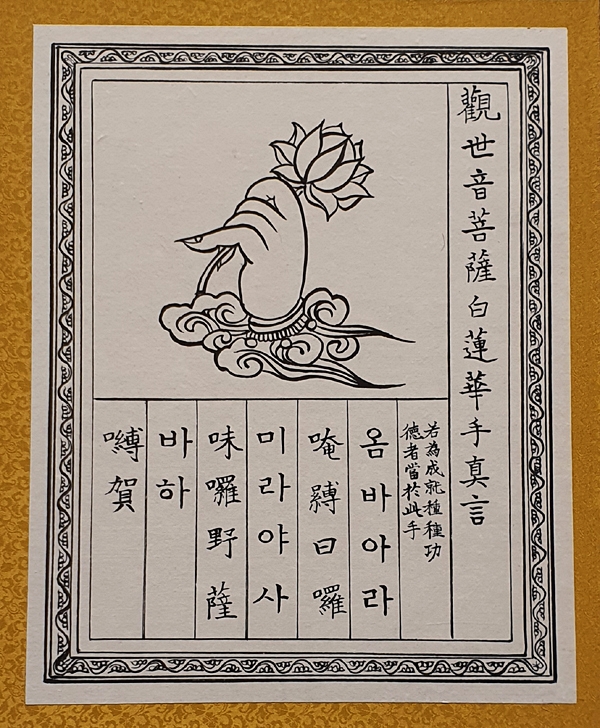 觀世音菩薩白蓮華手真言
若為成就種種功
德者當於此手
옴바아라
唵縛曰囉
미라야사
味囉野薩
바하
嚩賀